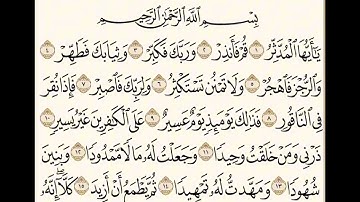 بِسْمِ اللَّهِ الرَّحْمَٰنِ الرَّحِيمِ
يَٰٓأَيُّهَا ٱلْمُدَّثِّرُ ١ قُمْ فَأَنذِرْ ٢ وَرَبَّكَ فَكَبِّرْ ٣ وَثِيَابَكَ فَطَهِّرْ ٤
وَٱلرُّجْزَ فَٱهْجُرْ ٥ وَلَا تَمْنُن تَسْتَكْثِرُ ٦ وَلِرَبِّكَ فَٱصْبِرْ ٧ فَإِذَا نُقِرَ
فِى ٱلنَّاقُورِ ٨ فَذَٰلِكَ يَوْمَئِذٍ يَوْمٌ عَسِيرٌ ٩ عَلَى ٱلْكَٰفِرِينَ غَيْرُ يَسِيرٍ ١٠
ذَرْنِى وَمَنْ خَلَقْتُ وَحِيدًا ١١ وَجَعَلْتُ لَهُۥ مَالًا مَّمْدُودًا ١٢ وَبَنِينَ
شُهُودًا ١٣ وَمَهَّدتُّ لَهُۥ تَمْهِيدًا ١٤ ثُمَّ يَطْمَعُ أَنْ أَزِيدَ ١٥ كَلَّآ إِنَّهُۥ